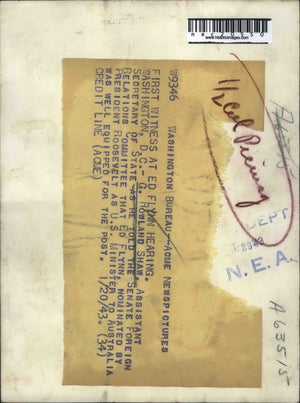 www.historicimages.com
W9346 WASHINGTON BUREAU--ACME NEWSPICTURES
FIRST WITNESS AT ED FLYNN HEARING.
WASHINGTON, D.C.--G. HOWLAND SHAW, ASSISTANT
SECRETARY OF STATE AS HE TOLD THE SENATE FOREIGN
RELATIONS COMMITTEE THAT ED FLYNN, NOMINATED BY
PRESIDENT ROOSEVELT AS U.S. MINISTER TO AUSTRALIA
WAS WELL EQUIPPED FOR THE POST.
CREDIT LINE (ACME) 1/20/43. (34)
1/2 Col
DEPT
N.E.A.
A63515